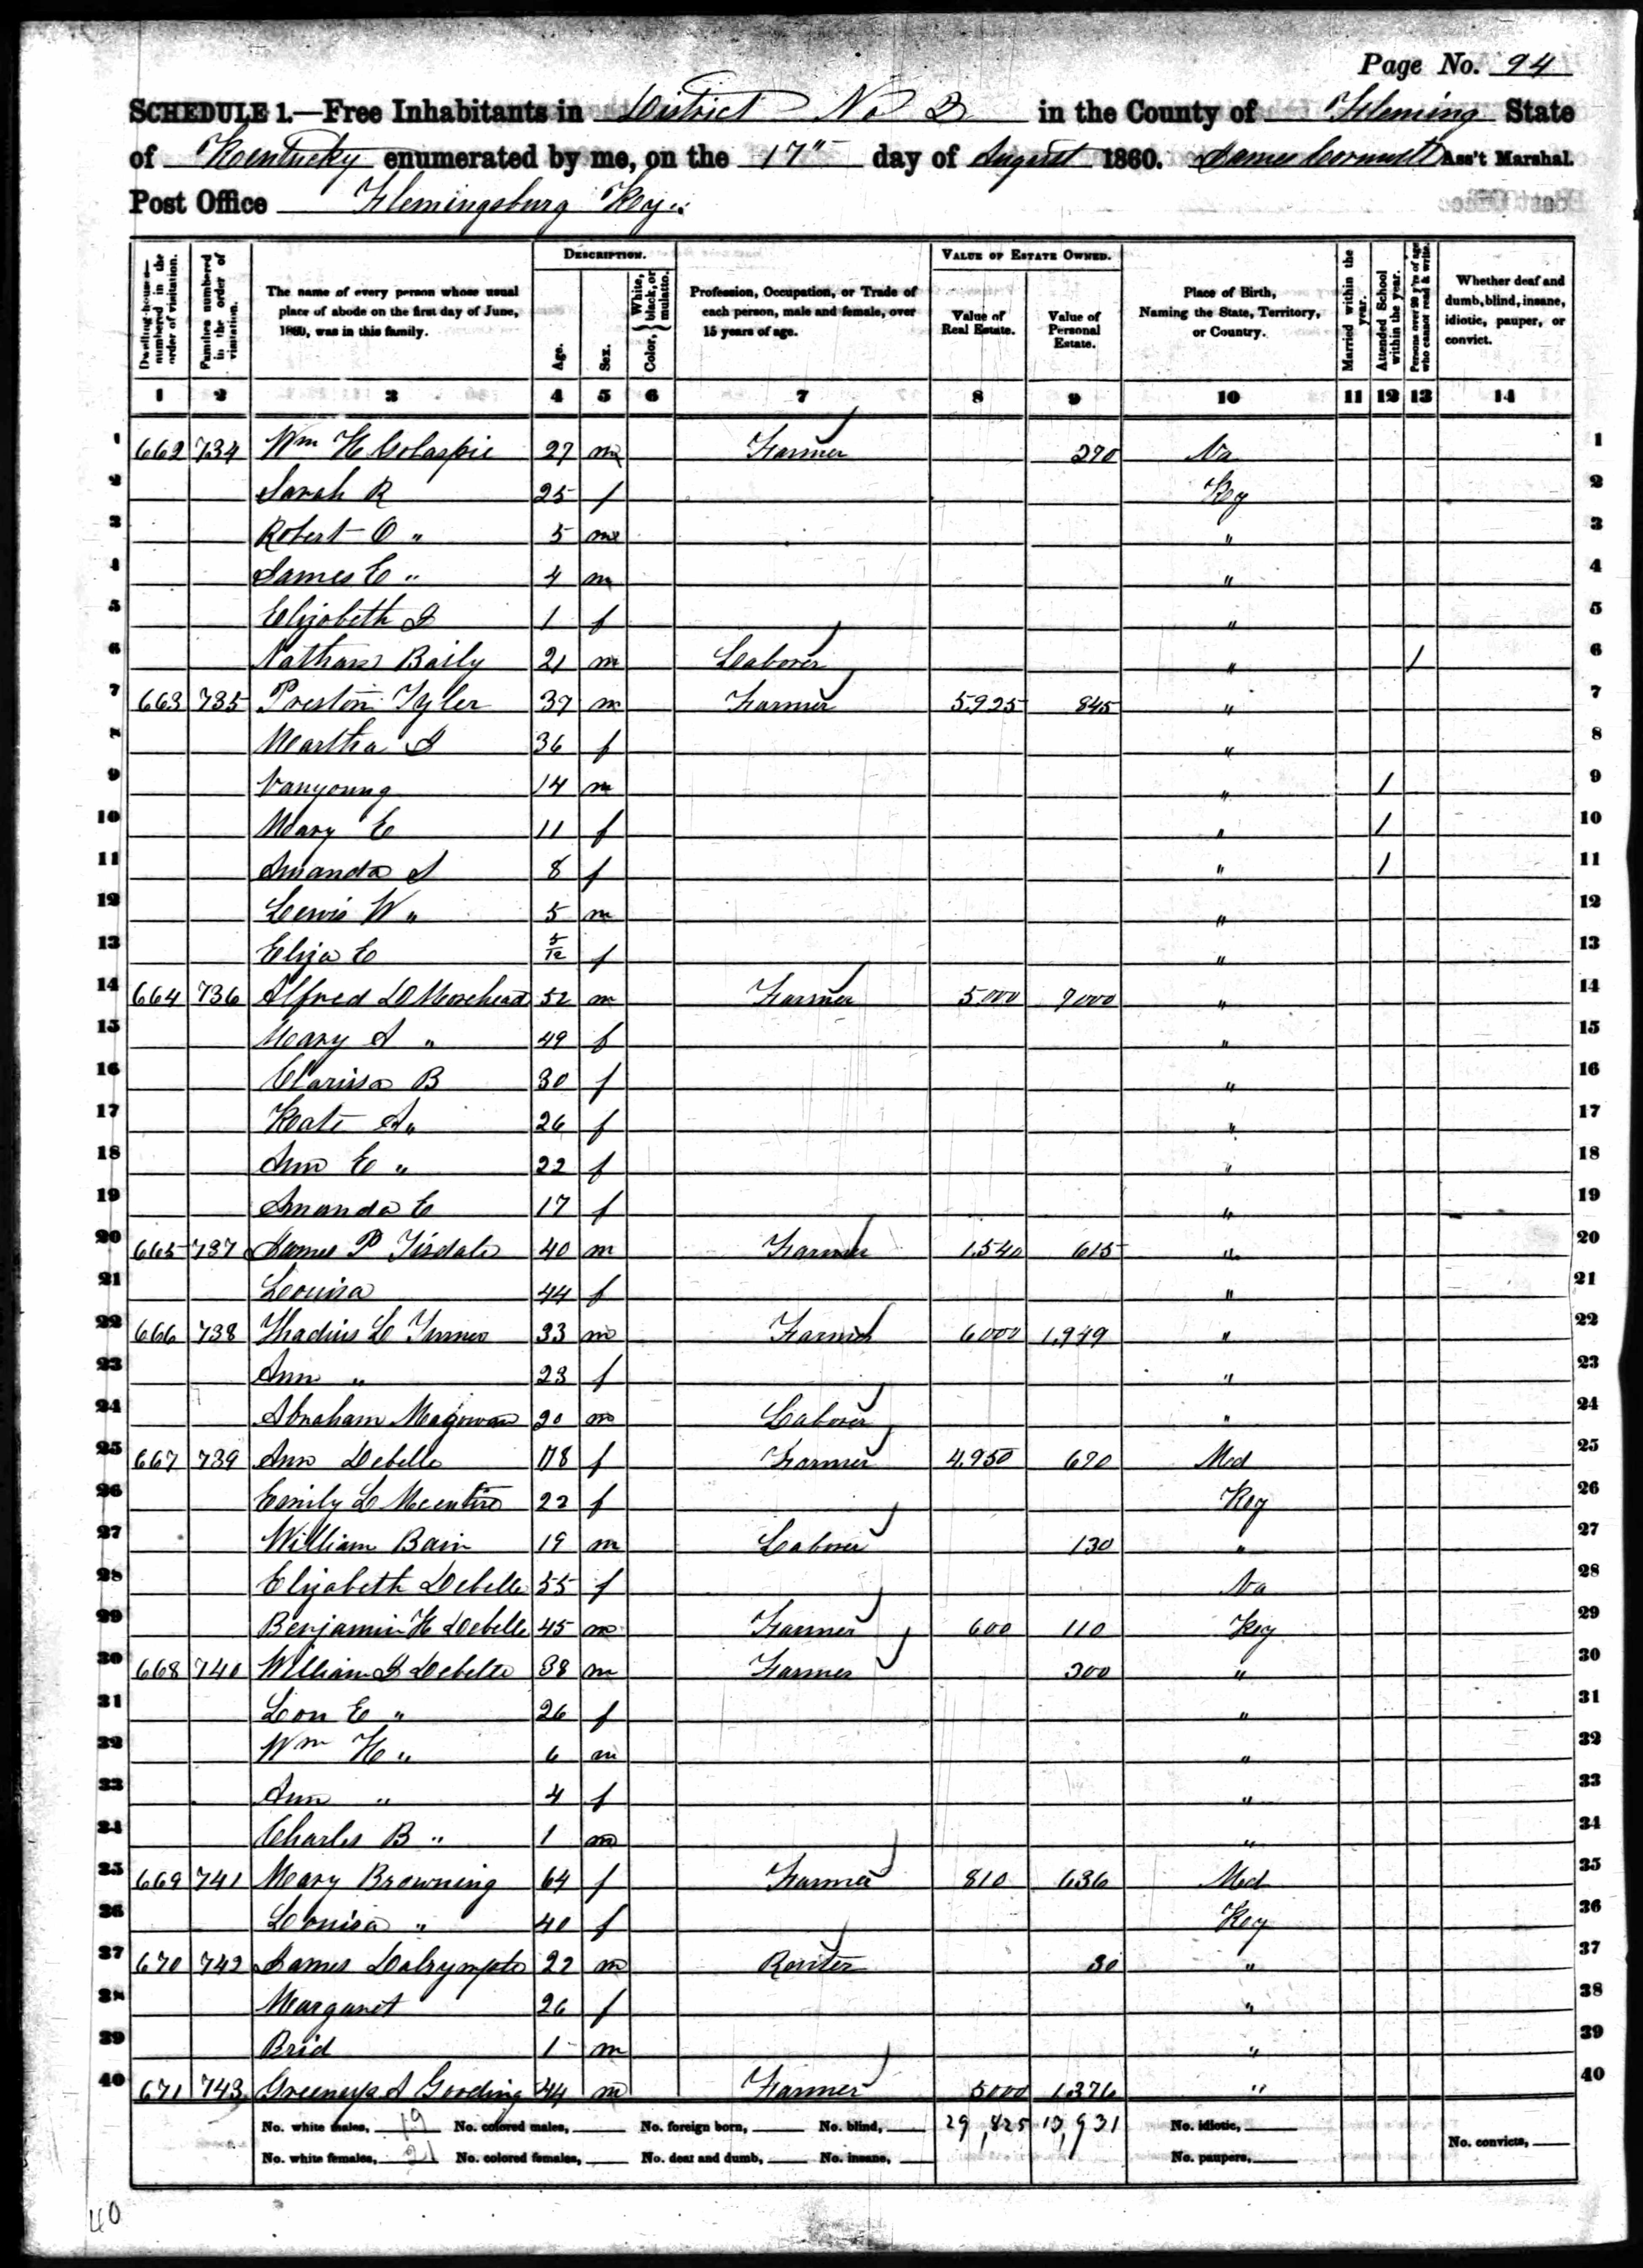 Page No. 94
SCHEDULE 1.—Free Inhabitants in District No 2 in the County of Fleming State
of Kentucky enumerated by me, on the 17" day of August 1860. James Ass't Marshal.
Post Office Flemingsburg Key
Dwelling-houses—numbered in the order of visitation.
Families numbered in the order of visitation.
The name of every person whose usual place of abode on the first day of June, 1860, was in this family.
DESCRIPTION.
Age.
Sex.
Color, { White, black, or mulatto.
Profession, Occupation, or Trade of each person, male and female, over 15 years of age.
VALUE OF ESTATE OWNED.
Value of Real Estate.
Value of Personal Estate.
Place of Birth, Naming the State, Territory, or Country.
Married within the year.
Attended School within the year.
Persons over 20 y'rs of age who cannot read & write.
Whether deaf and dumb, blind, insane, idiotic, pauper, or convict.
1 2 3 4 5 6 7 8 9 10 11 12 13 14
1 662 734 Wm H Golaspie 27 m Farmer 270 Va 1
2 Sarah R 25 f Key 2
3 Robert O " 5 m " 3
4 James E " 4 m " 4
5 Elizabeth J 1 f " 5
6 Nathan Baily 21 m Laborer " / 6
7 663 735 Preston Tyler 37 m Farmer 5925 845 " 7
8 Martha J 36 f " 8
9 Vanyoung 14 m " / 9
10 Mary E 11 f " / 10
11 Amanda S 8 f " / 11
12 Lewis W " 5 m " 12
13 Eliza E 5/12 f " 13
14 664 736 Alfred D Morehead 52 m Farmer 5,000 7000 " 14
15 Mary A " 49 f " 15
16 Clarissa B 30 f " 16
17 Kate A " 26 f " 17
18 Ann E " 22 f " 18
19 Amanda E 17 f " 19
20 665 737 James P Tisdale 40 m Farmer 1,540 615 " 20
21 Louisa 44 f " 21
22 666 738 Thadius C Turner 33 m Farmer 6000 1,949 " 22
23 Ann " 23 f " 23
24 Abraham Magowan 20 m Laborer " 24
25 667 739 Ann Debelle 78 f Farmer 4,950 670 Md 25
26 Emily L Mcentire 22 f Key 26
27 William Bain 19 m Laborer 130 " 27
28 Elizabeth Debelle 55 f Va 28
29 Benjamin H Debelle 45 m Farmer 600 110 Key 29
30 668 740 William J Debelle 38 m Farmer 300 " 30
31 Lou E " 26 f " 31
32 Wm H " 6 m " 32
33 Ann " 4 f " 33
34 Charles B " 1 m " 34
35 669 741 Mary Browning 64 f Farmer 810 636 Md 35
36 Louisa " 40 f Key 36
37 670 742 James Dalrymple 22 m Renter 30 " 37
38 Margaret 26 f " 38
39 Brid 1 m " 39
40 671 743 A Gooding 44 m Farmer 5000 1,376 " 40
No. white males, 19 No. colored males, No. foreign born, No. blind, 29,825 13,931 No. idiotic,
No. white females, 21 No. colored females, No. deaf and dumb, No. insane, No. paupers, No. convicts,
40